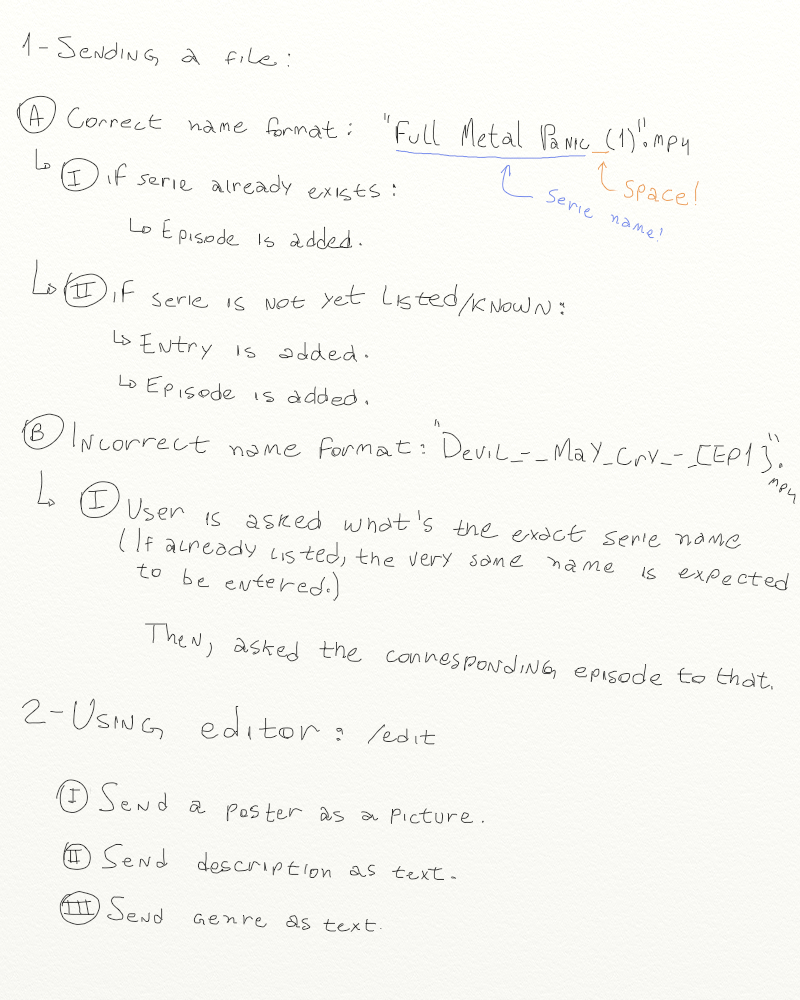 1- Sending a file:
A Correct name format: "Full Metal Panic_(1)".mp4
I if serie already exists:
Space!
Serie name!
↳ Episode is added.
II if serie is not yet Listed/Known:
↳ Entry is added.
↳ Episode is added.
B Incorrect name format: "Devil_-_May_Cry_-_[EP1}.
mp4
I User is asked what's the exact serie name
(If already listed, the very same name is expected
to be entered.)
Then, asked the corresponding episode to that.
2- Using editor: /edit
I Send a poster as a picture.
II Send description as text.
III Send genre as text.